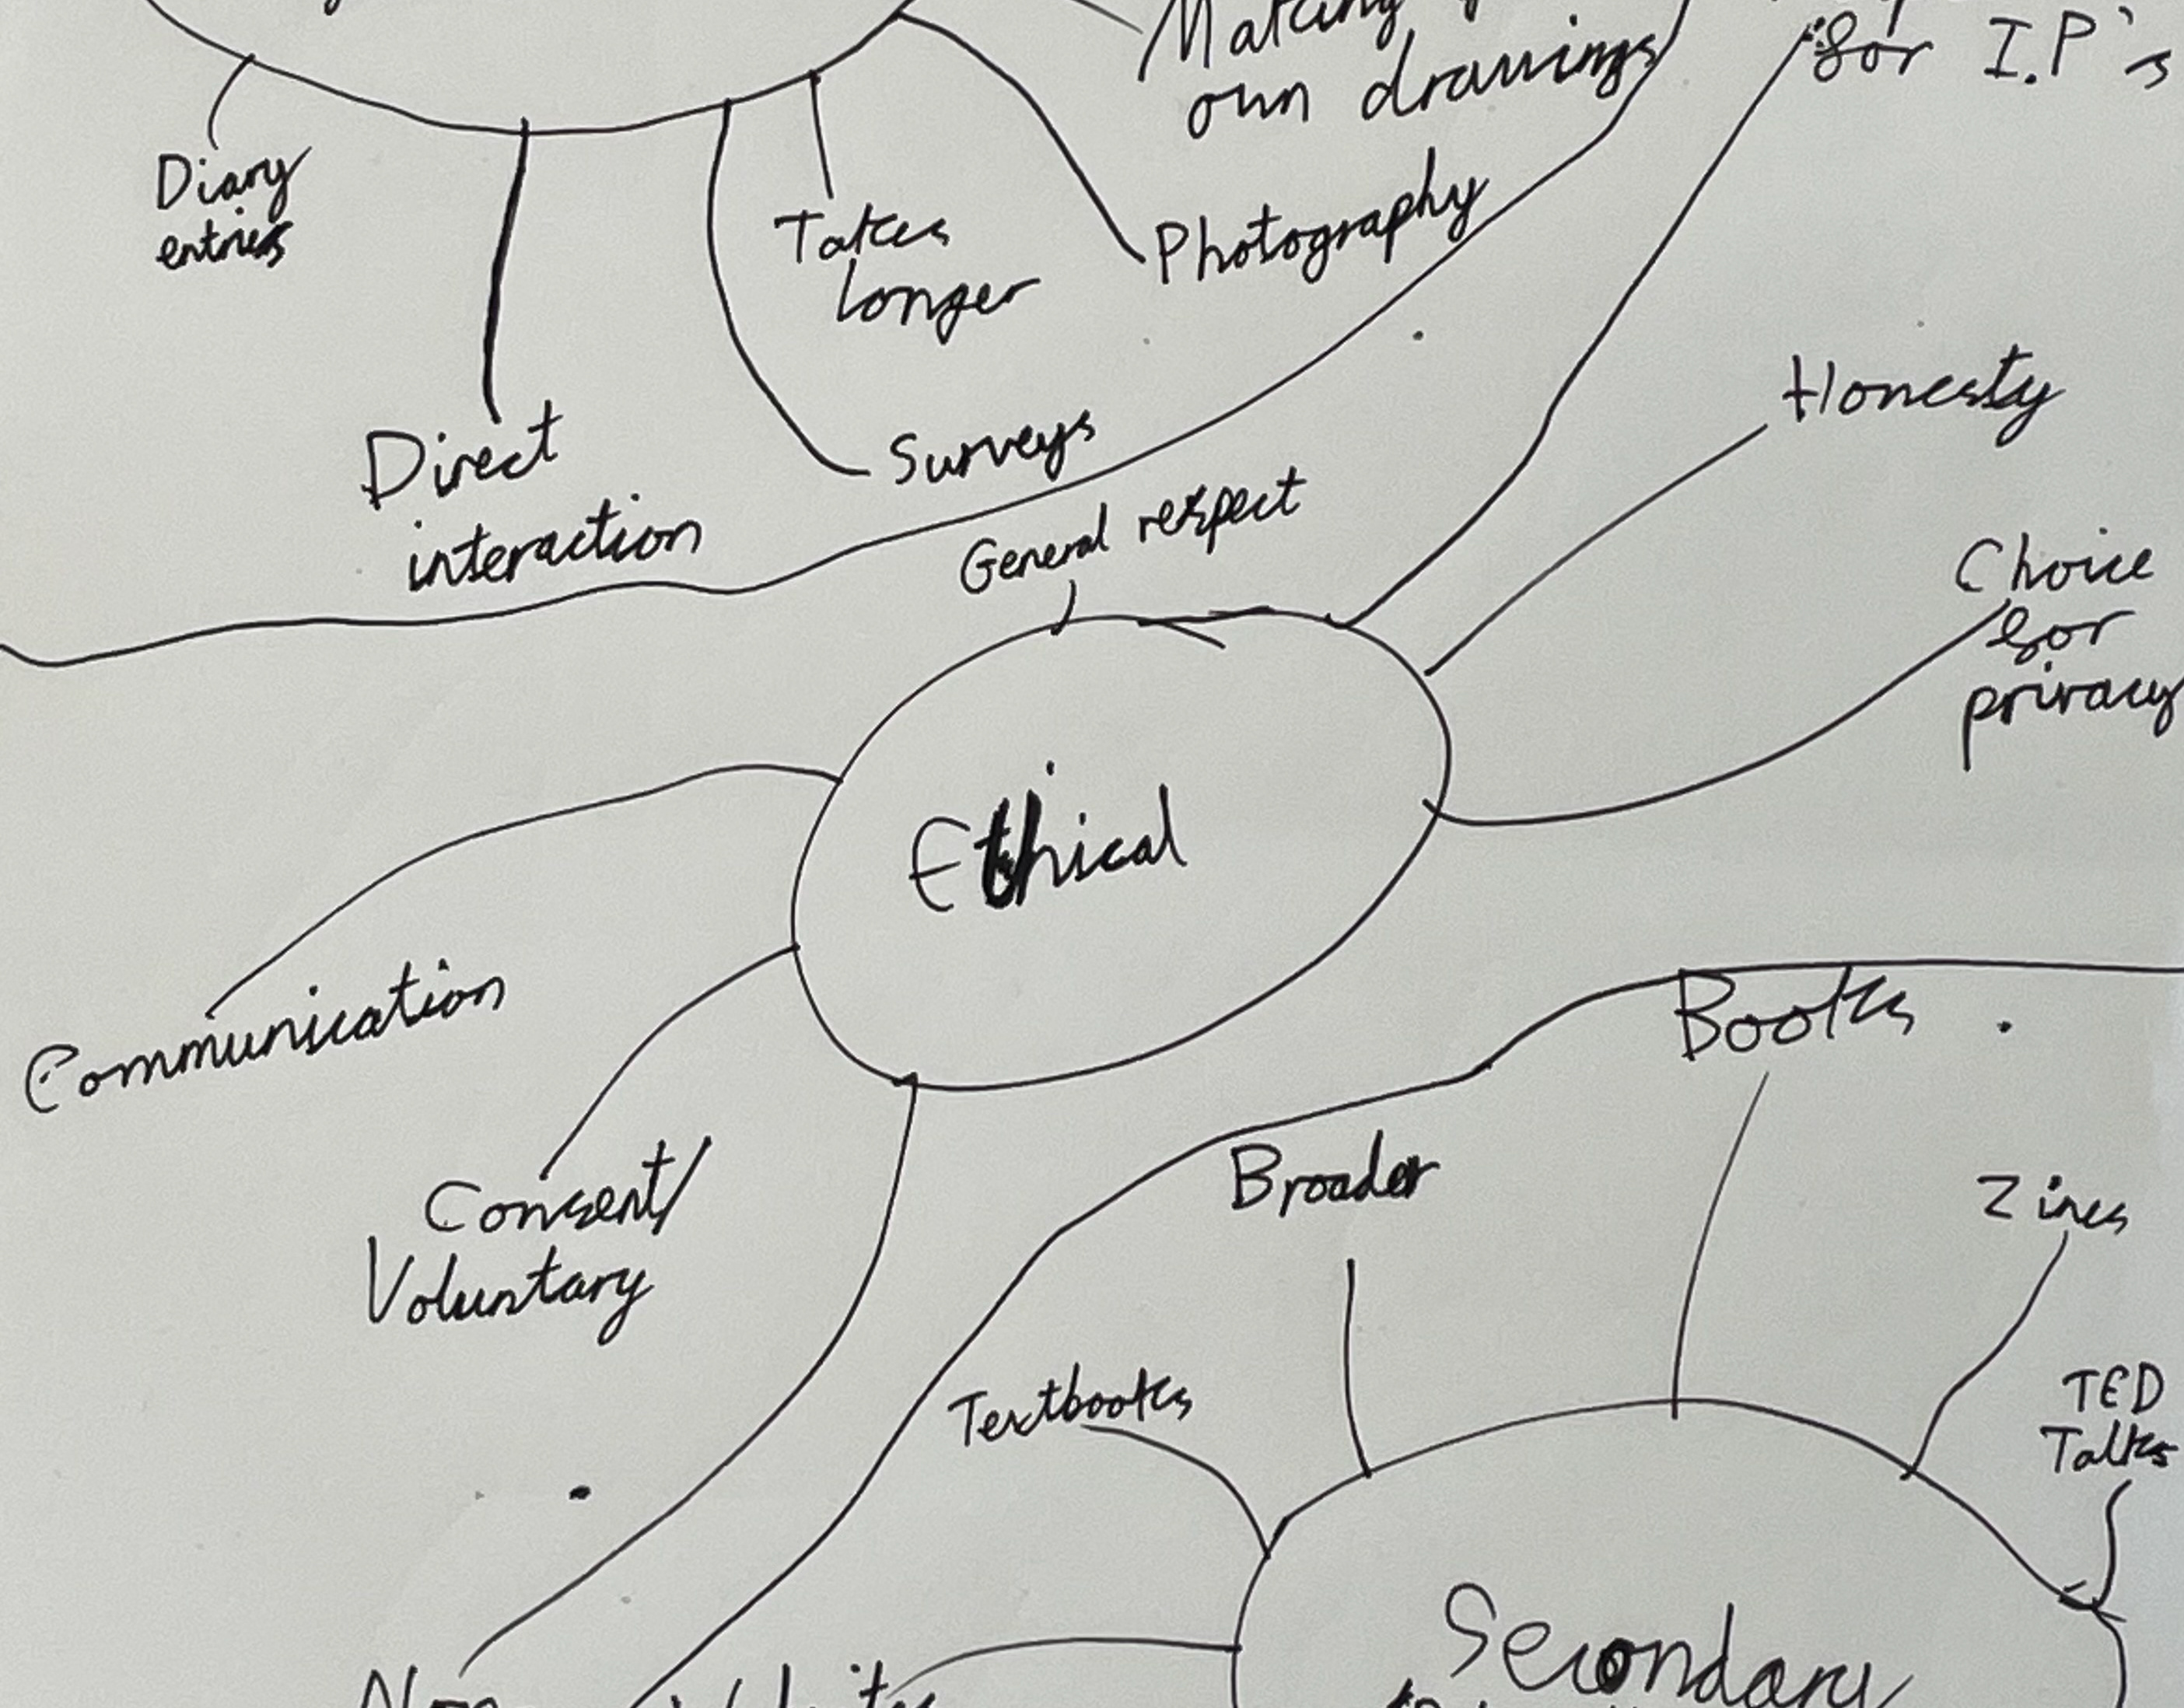 Making
own drawings
for I.P's
Diary
entries
Takes
longer
Photography
Direct
interaction
Surveys
Honesty
General respect
Choice
for
privacy
Ethical
Communication
Consent/
Voluntary
Books
Broader
Zines
Textbooks
TED
Talks
Secondary